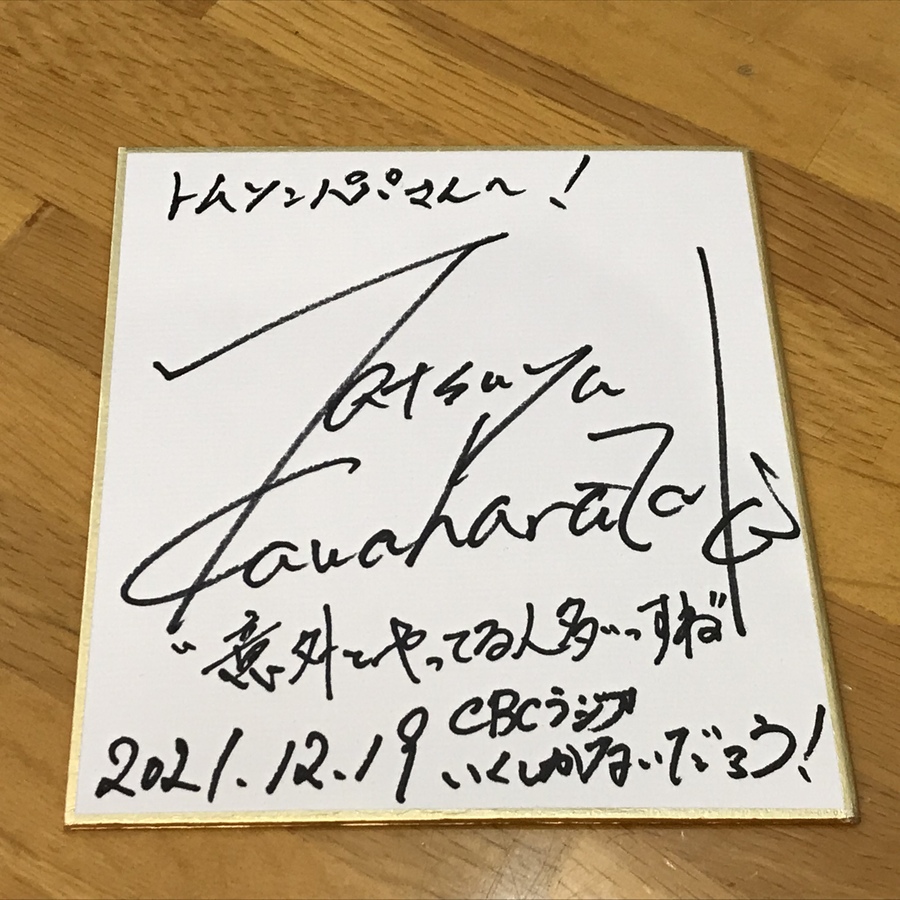 トムソンパパさんへ!
Tatsuya
Kawahara
"意外とやってる人多いっすね"
2021.12.19 CBCラジオ
いくしかないだろう!